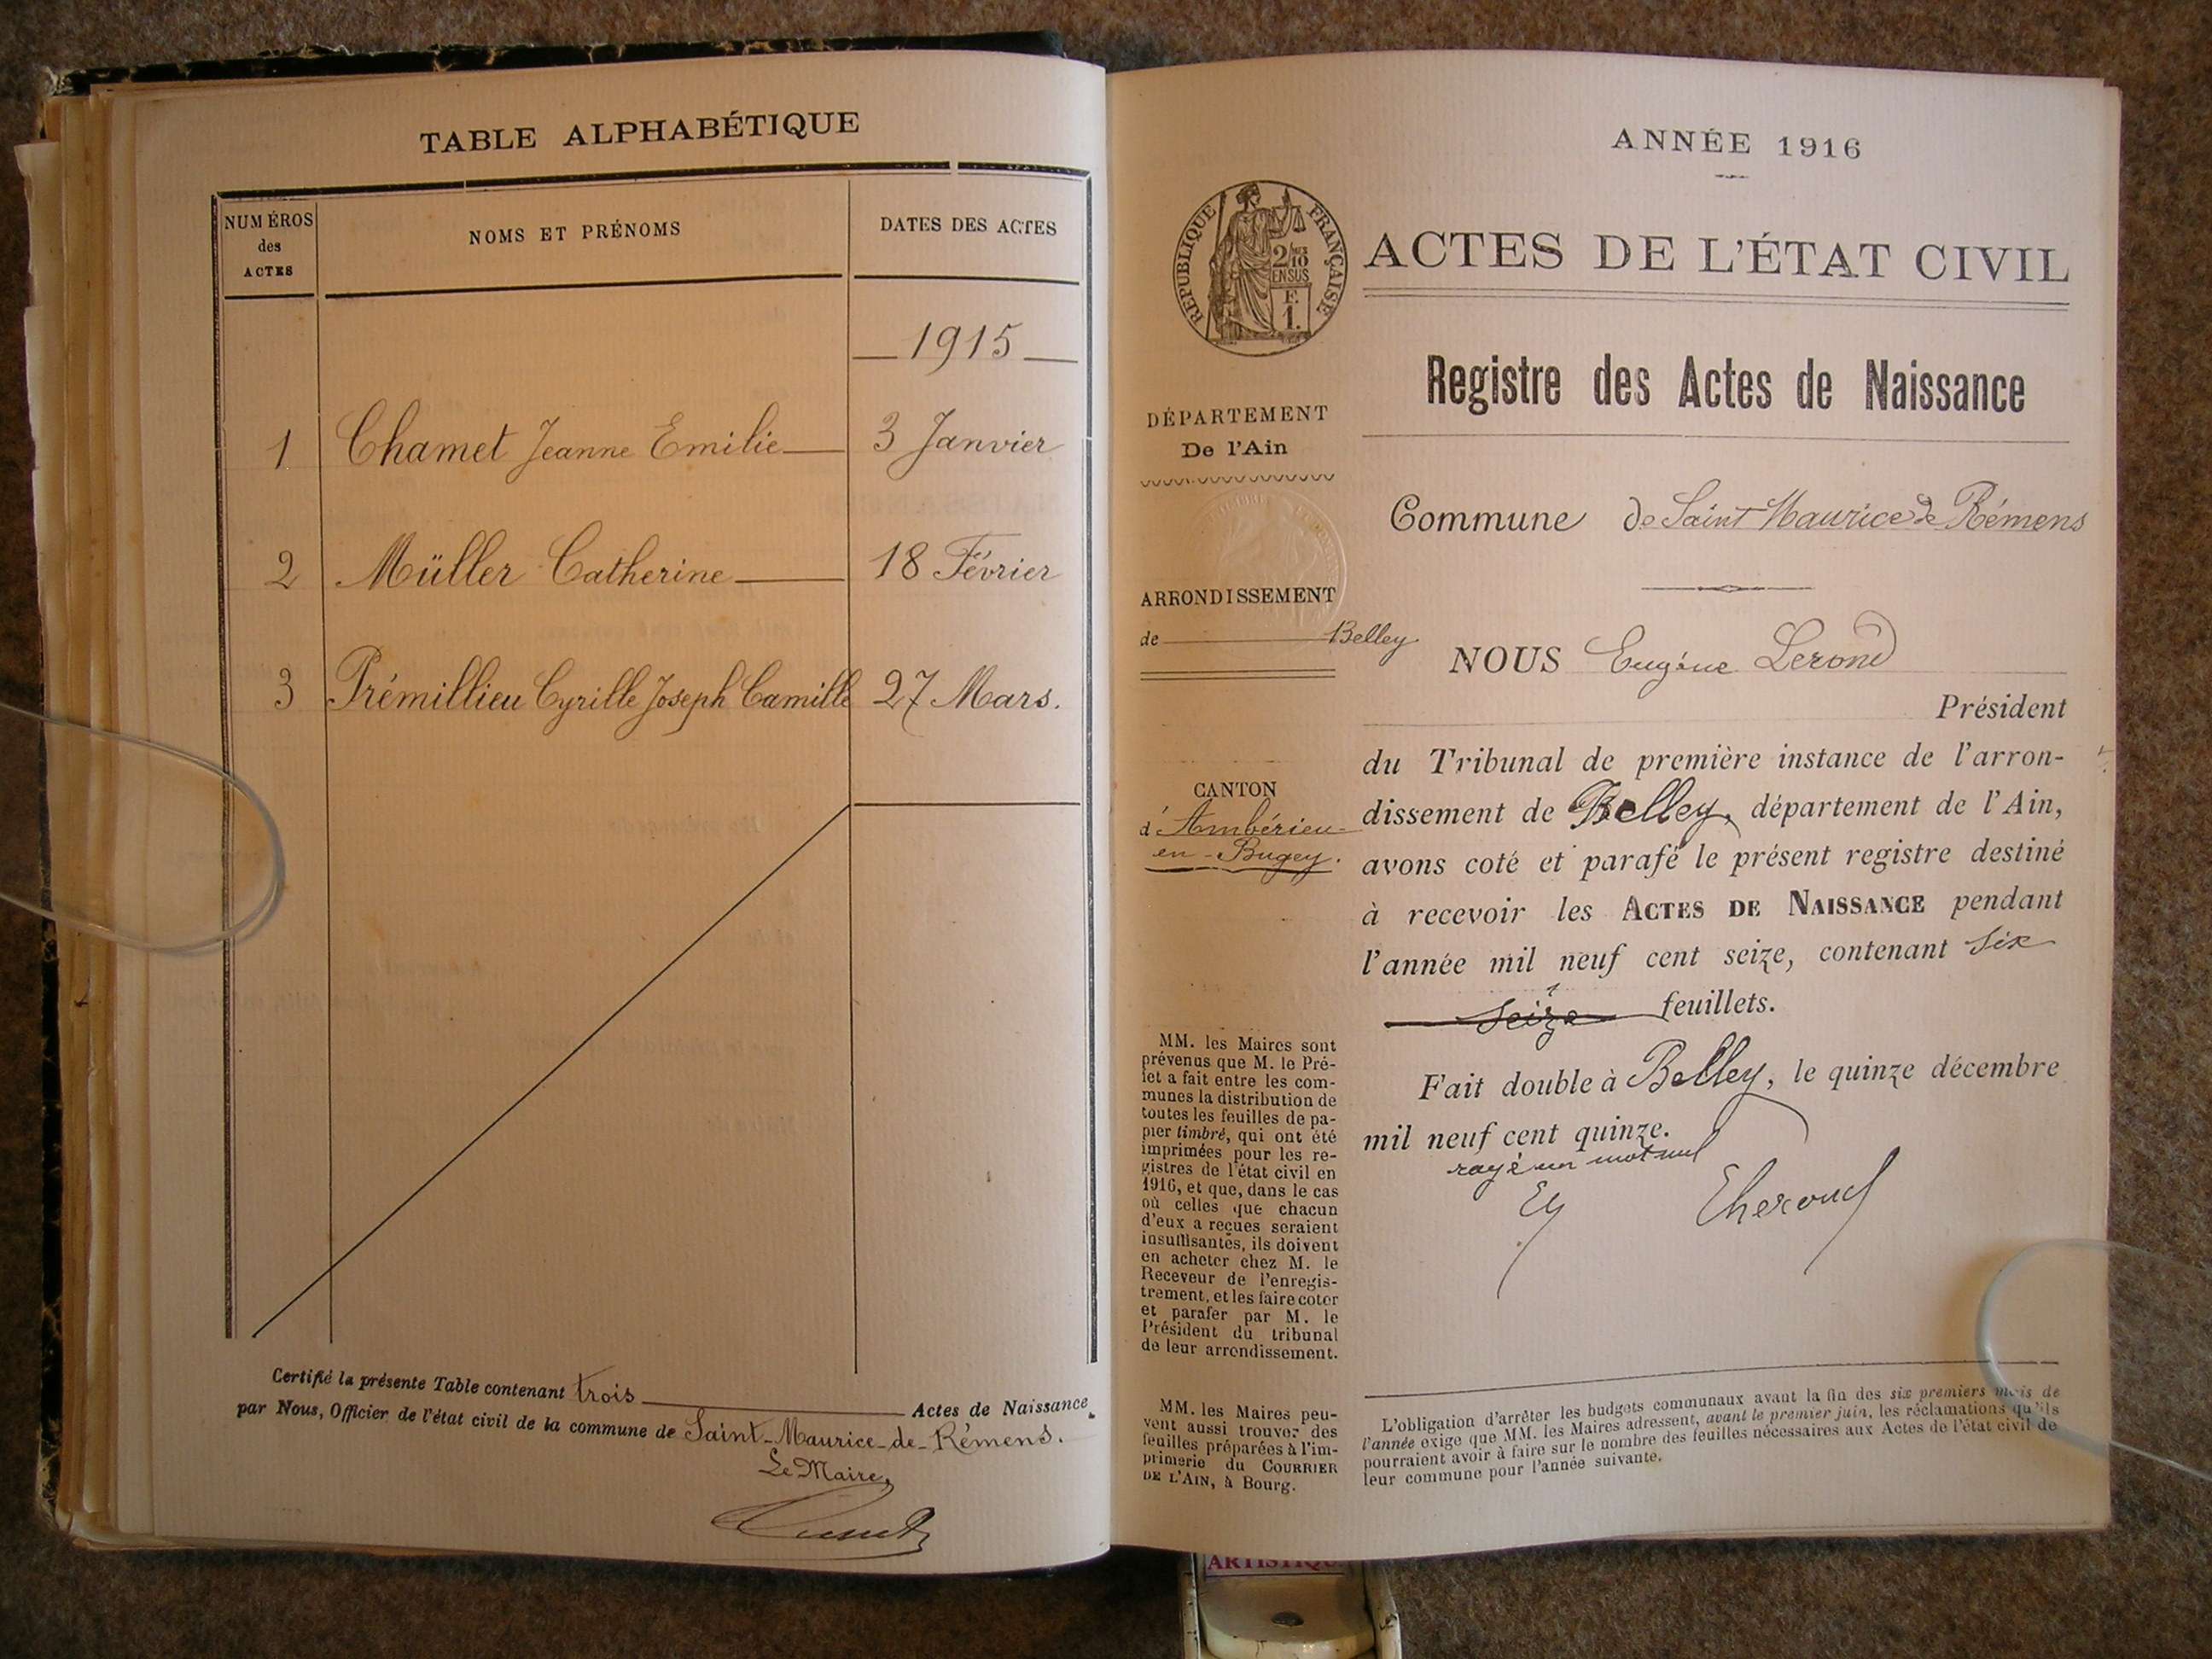 TABLE ALPHABÉTIQUE
NUMÉROS
des
ACTES
NOMS ET PRÉNOMS
DATES DES ACTES
1915
1 Chamet Jeanne Emilie 3 Janvier
2 Müller Catherine 18 Février
3 Prémillieu Cyrille Joseph Camille 27 Mars.
Certifié la présente Table contenant trois Actes de Naissance
par Nous, Officier de l'état civil de la commune de Saint-Maurice-de-Rémens.
Le Maire,
ANNÉE 1916
RÉPUBLIQUE FRANÇAISE
2/10
EN SUS
F.
1.
ACTES DE L'ÉTAT CIVIL
Registre des Actes de Naissance
DÉPARTEMENT
De l'Ain
Commune de Saint Maurice de Rémens
ARRONDISSEMENT
de Belley
NOUS Eugène Lerond
Président
du Tribunal de première instance de l'arron-
dissement de Belley, département de l'Ain,
avons coté et parafé le présent registre destiné
à recevoir les ACTES DE NAISSANCE pendant
l'année mil neuf cent seize, contenant six
seize feuillets.
Fait double à Belley, le quinze décembre
mil neuf cent quinze.
rayé un mot nul
CANTON
d'Ambérieu-
en-Bugey.
MM. les Maires sont
prévenus que M. le Pré-
fet a fait entre les com-
munes la distribution de
toutes les feuilles de pa-
pier timbré, qui ont été
imprimées pour les re-
gistres de l'état civil en
1916, et que, dans le cas
où celles que chacun
d'eux a reçues seraient
insuffisantes, ils doivent
en acheter chez M. le
Receveur de l'enregis-
trement, et les faire coter
et parafer par M. le
Président du tribunal
de leur arrondissement.
MM. les Maires peu-
vent aussi trouver des
feuilles préparées à l'im-
primerie du COURRIER
DE L'AIN, à Bourg.
L'obligation d'arrêter les budgets communaux avant la fin des six premiers mois de
l'année exige que MM. les Maires adressent, avant le premier juin, les réclamations qu'ils
pourraient avoir à faire sur le nombre des feuilles nécessaires aux Actes de l'état civil de
leur commune pour l'année suivante.